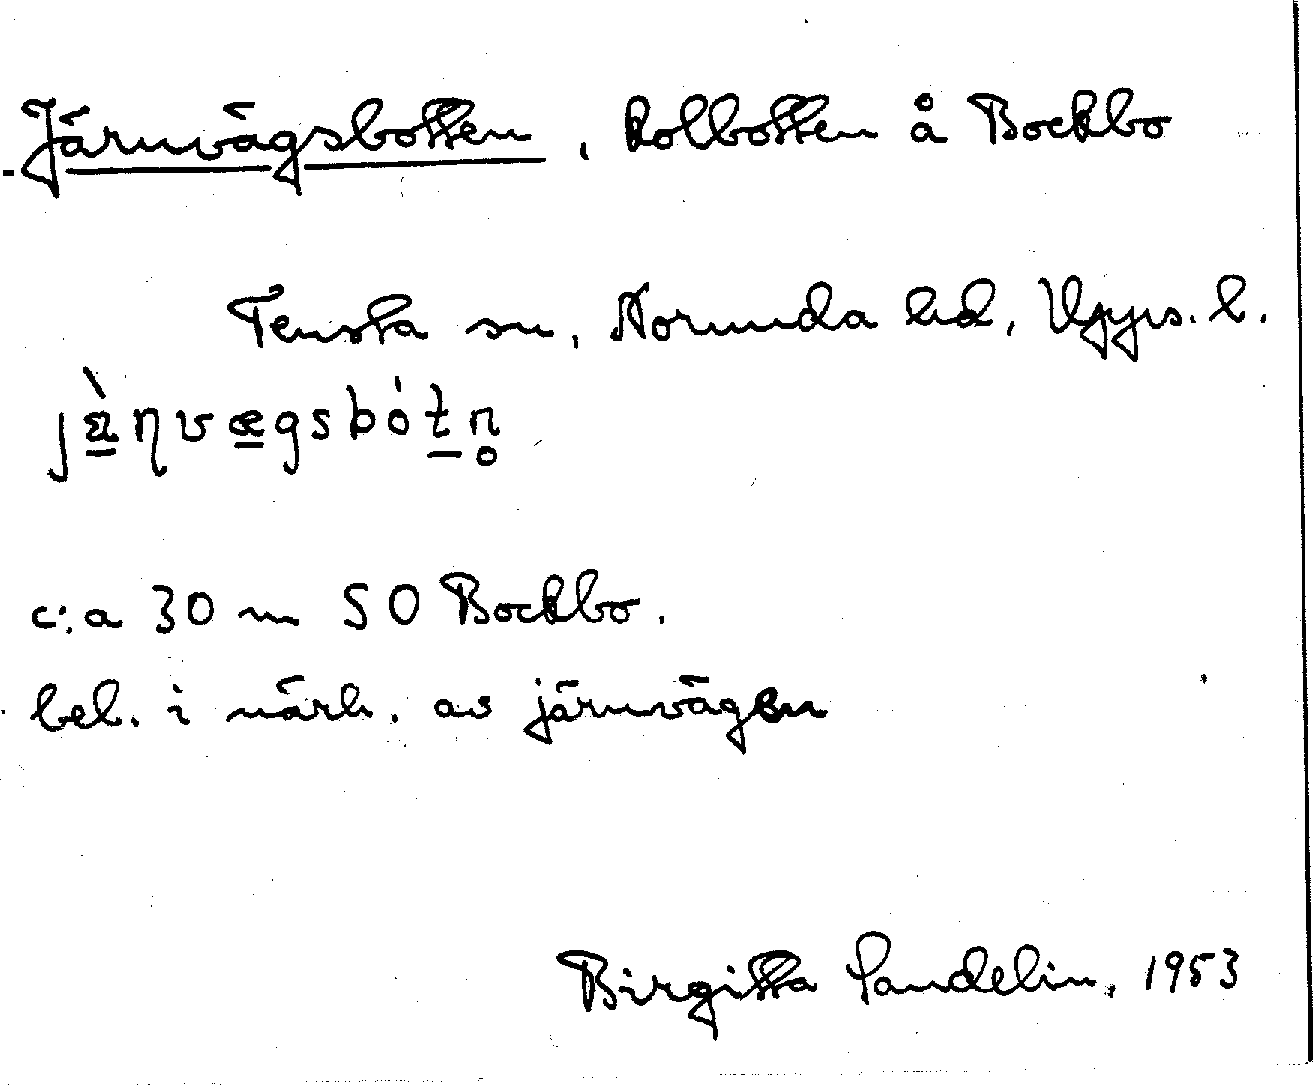 Järnvägsbotten, kolbotten å Bockbo
Tensta sn, Norunda hd, Upps. l.
jæ̠̀ŋvæ̠gsbót̠n̥
c:a 30 m SO Bockbo.
bel. i närh. av järnvägen
Birgitta Sandelin, 1953